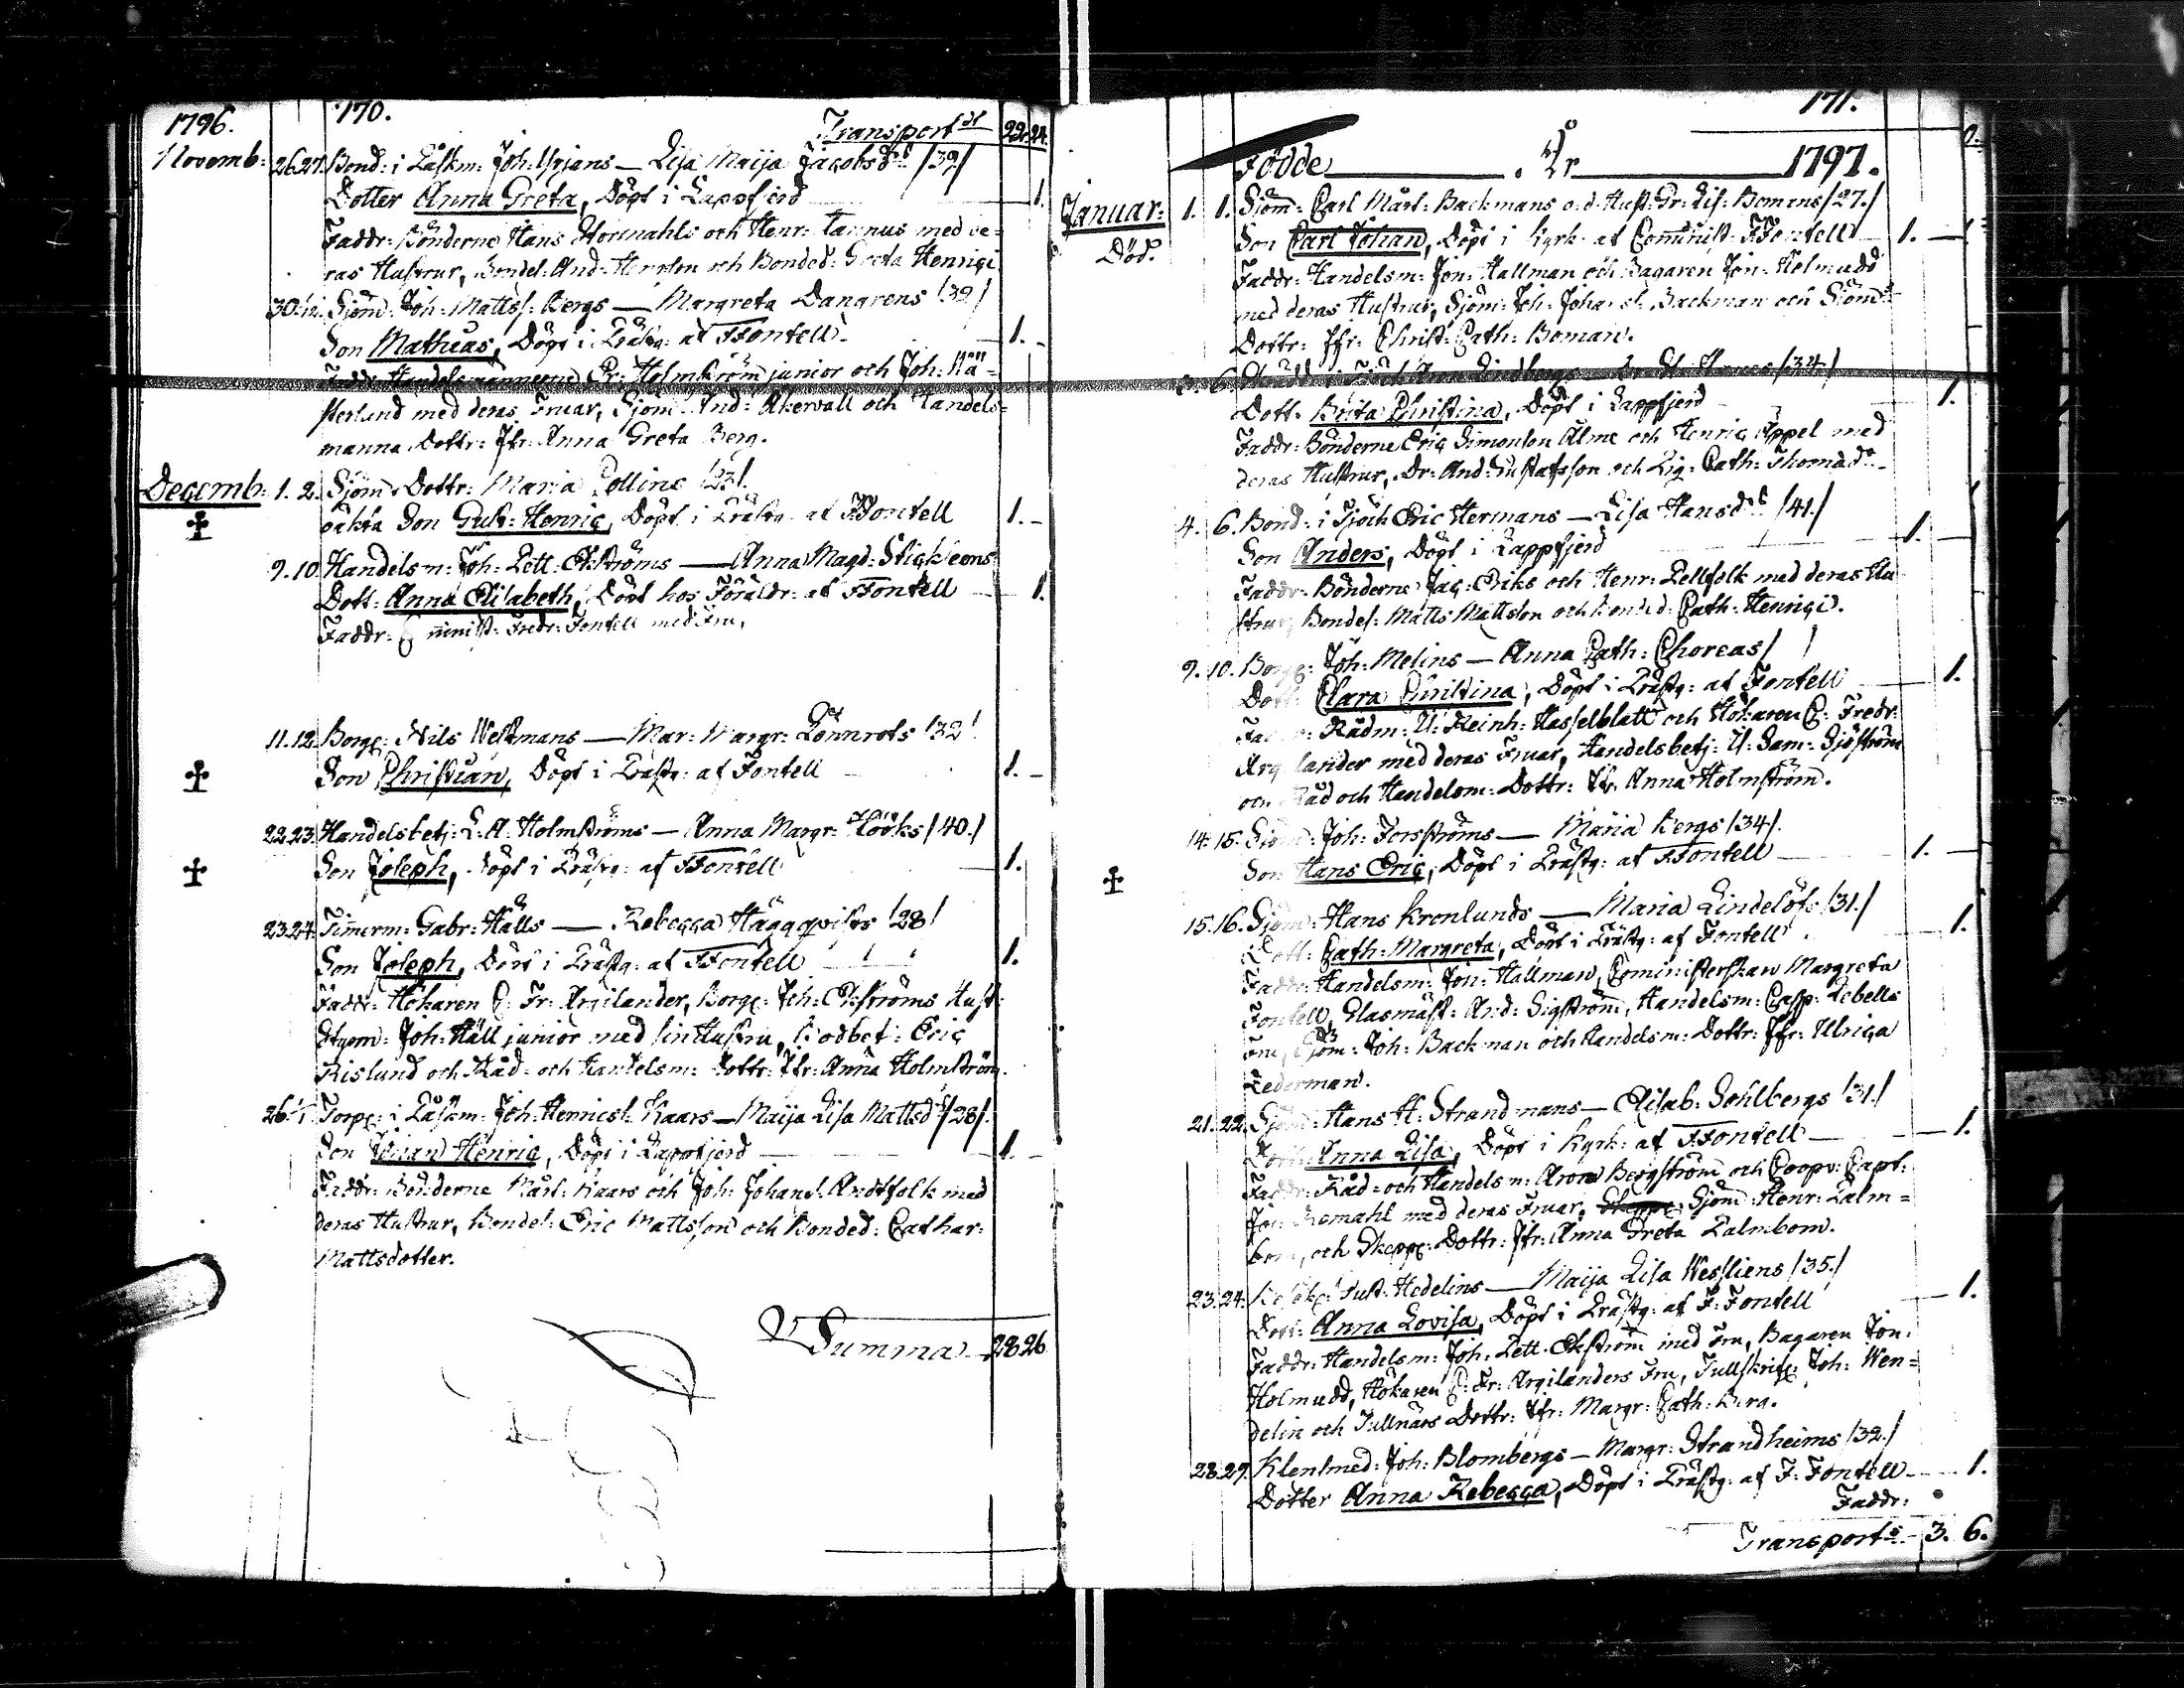 1796. 170. Transport 22. 24.
Novemb: 26. 27. Bond: i Låskm: Joh: Yrjans — Lisa Maija Jacobsd:r /39/
Dotter Anna Greta, Döpt i Lappfjerd 1.
Faddr: Bönderne Hans Stormahls och Henr: Tannus med de=
ras Hustrur, Bondes: And: Henrsson och Bonded: Greta Henrici
30. Sjöm: Joh: Mattss: Bergs — Margreta Danarens /39/
Son Mathias, Döpt i Prästg: af FFontell 1.
Faddr: Handelsmännerne Er: Holmström junior och Joh: Nä=
sterlund med deras Fruar, Sjöm: And: Åkervall och Handels=
manna Dottr: Jfr: Anna Greta Berg.
Decemb: 1. 2. Sjöm: Dottr: Maria Pollins /23/.
oäkta Son Gust: Henric, Döpt i Prästg: af FFontell 1.
9. 10. Handelsm: Joh: Zett: Ekströms — Anna Magd: Stickleens
Dott: Anna Elisabeth, Döpt hos Föräldr: af FFontell 1.
Faddr: Fredr: Fontell med Fru,
11. 12. Borg: Nils Westmans — Mar: Margr: Lönnrots /32/
Son Christian, Döpt i Prästg: af Fontell 1.
22. 23. Handelsbetj: L: A: Holmströms — Anna Margr: Höörks /40./
Son Joseph, Döpt i Prästg: af FFontell 1.
23. 24. Timerm: Gabr: Hälls — Rebecca Häggqvists /28/
Son Joseph, Döpt i Prästg: af FFontell 1.
Faddr: Hökaren C: Fr: Argilander, Borg: Joh: Ekströms Hust:
Styrm: Joh: Häll junior med sin Hustru, Eric
Rislund och Råd- och Handelsm: Dottr: Jfr: Anna Holmström.
26. Torp: i Låskm: Joh: Henricss: Kaars — Maija Lisa Mattsd:r /28/.
Son Johan Henric, Döpt i Lappfjerd 1.
Faddr: Bönderne Mårt: Kaars och Joh: Johanss: Andtfolk med
deras Hustrur, Bondes: Eric Mattsson och Bonded: Cathar:
Mattsdotter.
Summa 28 26
171.
Födde År 1797.
Januar: 1. 1. Sjöm: Carl Mårt: Backmans o.d. Hust: Br: Lis: Bomans /27./
Död. Son Carl Johan, Döpt i Kyrk: af Comminist: FFontell 1.
Faddr: Handelsm: Jon: Hallman och Bagaren Jon: Holmudd
med deras Hustrur, Sjöm: Joh: Johanss: Backman och Sjöm:s
Dottr: Jfr: Christ: Cath: Boman.
6. /34./
Dott: Brita Christina, Döpt i Lappfjerd 1.
Faddr: Bönderne Eric Simonson Alme och Henric Äppel med
deras Hustrur, Dr: And: Gustafsson och Pig: Cath: Thomæd:r
4. 6. Bond: i Tjöck Eric Hermans — Lisa Hansd:r /41./
Son Anders, Döpt i Lappfjerd 1.
Faddr: Bönderne Jac: Eriks och Henr: Pellfolk med deras Hu
strur, Bondes: Matts Mattsson och Bonded: Cath: Henrici.
9. 10. Borg: Joh: Melins — Anna Cath: Choreas / /
Dott: Clara Christina, Döpt i Prästg: af Fontell 1.
Rådm: U: Reinh: Hasselblatt och Hökaren C: Fredr:
Argilander med deras Fruar, Handelsbetj: U: Sam: Sjöström
och Råd och Handelsm: Dottr: Jfr: Anna Holmström.
14. 15. Sjöm: Joh: Forsströms — Maria Bergs /34/.
Son Hans Eric, Döpt i Prästg: af FFontell 1.
15. 16. Sjöm: Hans Kronlunds — Maria Lindelöfs /31./
Dott: Cath: Margreta, Döpt i Prästg: af Fontell 1.
Faddr: Handelsm: Jon: Hallman, Cominist­erskan Margreta
Fontell, Glasmäst: And: Sigström, Handelsm: Casp: Lebells
Sjöm: Joh: Backman och Handelsm: Dottr: Jfr: Ulrica
Lederman.
21. 22. Sjöm: Hans H: Strandmans — Elisab: Sohlbergs /31./
Dott: Anna Lisa, Döpt i Kyrk: af FFontell 1.
Faddr: Råd- och Handelsm: Aron Bergström och Coopv: Capt:
med deras Fruar, Sjöm: Henr: Palm=
bom, och Skepp: Dottr: Jfr: Anna Greta Palmbom.
23. 24. Gust: Hedelins — Maija Lisa Wessliens /35./
Dott: Anna Lovisa, Döpt i Prästg: af F: Fontell 1.
Faddr: Handelsm: Joh: Zett: Ekström med Fru, Bagaren Jon:
Holmudd, Hökaren C: Fr: Argilanders Fru, Tullskrif: Joh: Wen=
delin och Tullnärs Dottr: Jfr: Margr: Cath: Berg.
28. 29. Klensmed: Joh: Blombergs — Margr: Strandheims /32./
Dotter Anna Rebecca, Döpt i Prästg: af F: Fontell 1.
Faddr:
Transport 3. 6.